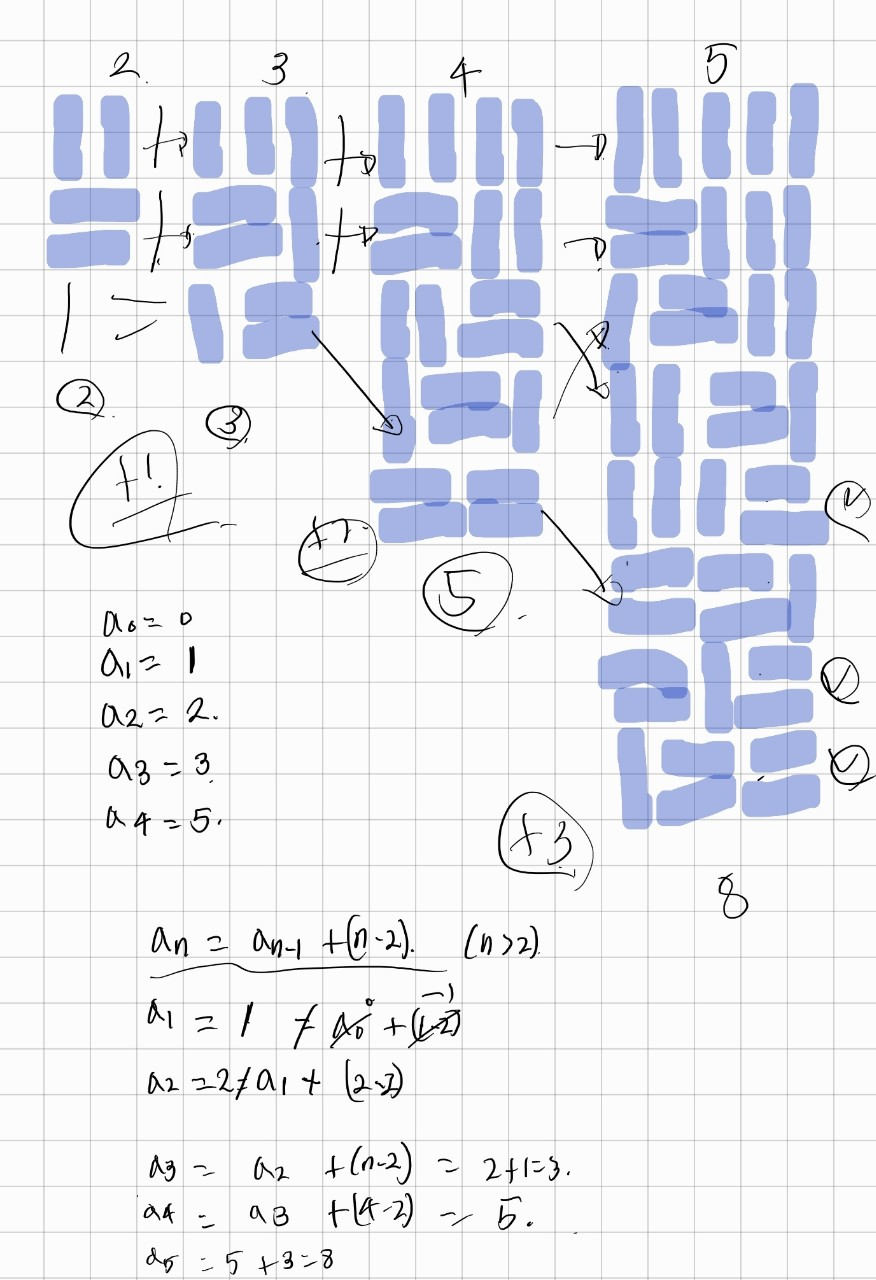 2. 3 4 5
1 =
②. ③
+1
+2
⑤.
a₀ = 0
a₁ = 1
a₂ = 2.
a₃ = 3.
a₄ = 5.
+3
8
aₙ = aₙ₋₁ + (n-2). (n>2).
a₁ = 1 ≠ a₀ + (1-2)
a₂ = 2 ≠ a₁ + (2-2)
a₃ = a₂ + (n-2) = 2+1=3.
a₄ = a₃ + (4-2) = 5.
a₅ = 5 + 3 = 8